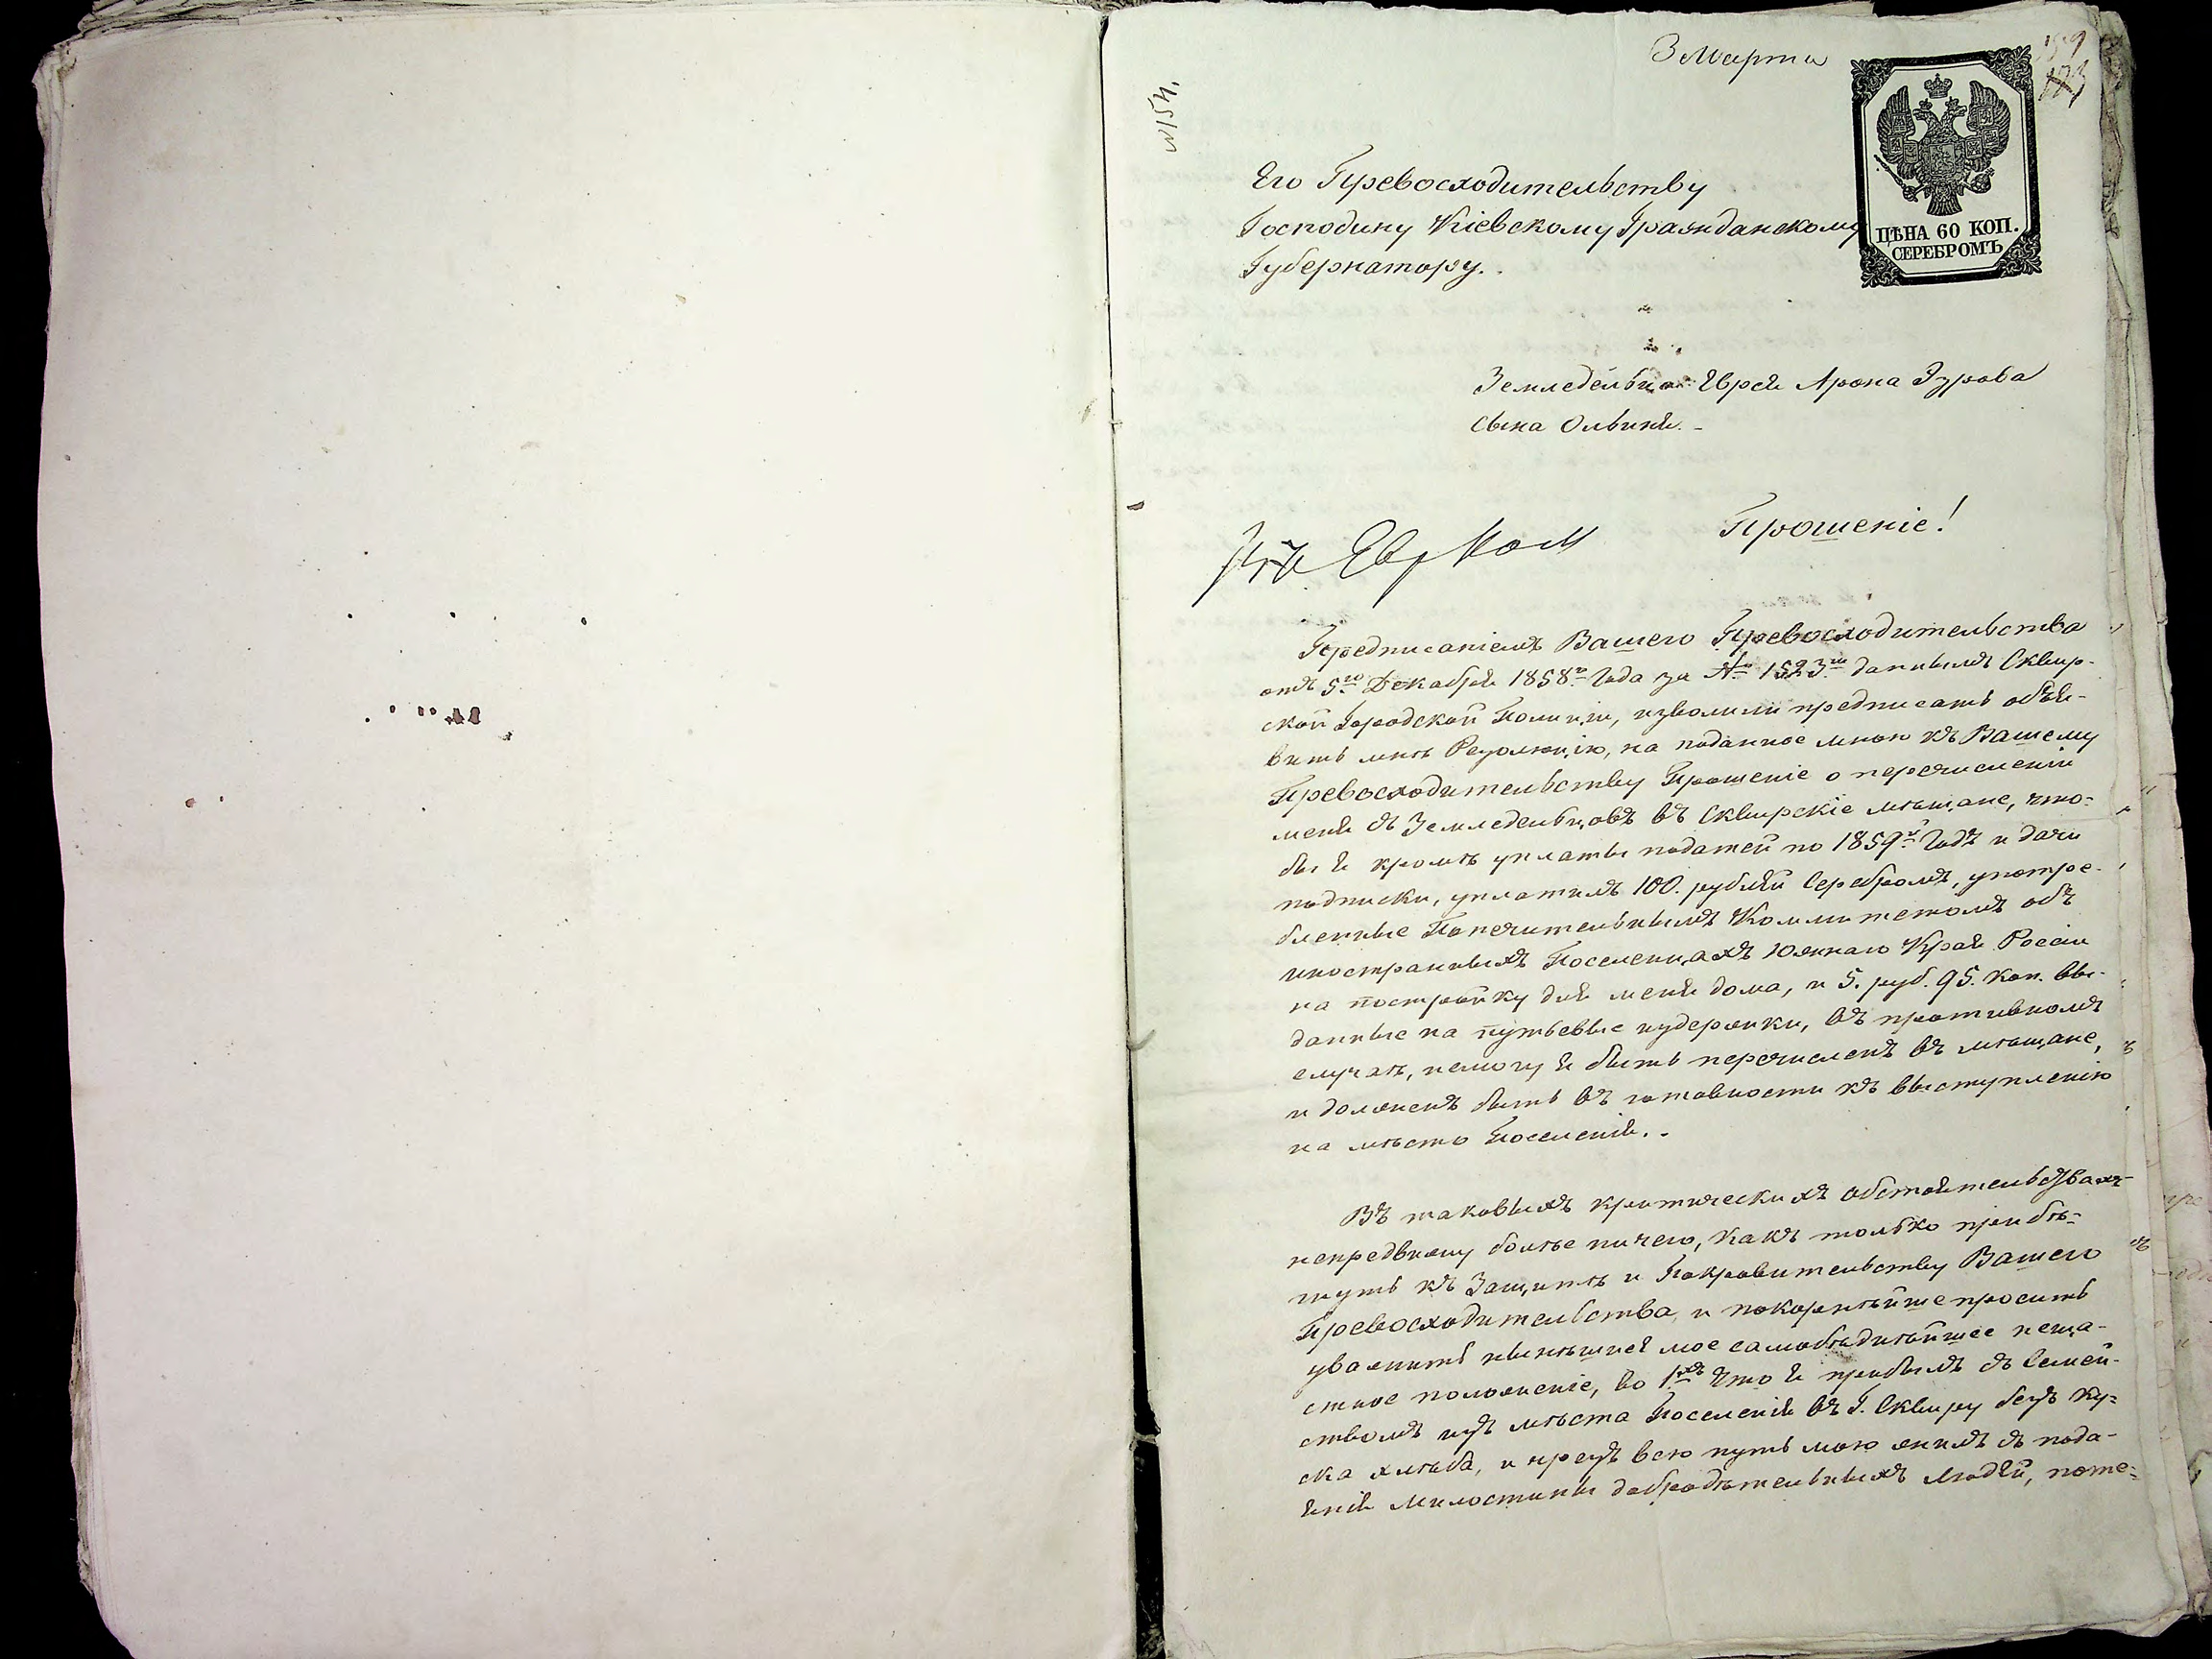 3 Марта
159
173
№ 154.
ЦѢНА 60 КОП.
СЕРЕБРОМЪ
Его Превосходительству
Господину Кіевскому Гражданскому
Губернатору.
Земледельца Еврея Арона Зурова
сына Ольвиня.
Прошеніе!
Евр
Предписаніемъ Вашего Превосходительства
отъ 5го Декабря 1858го Года за № 1523м даннымъ Сквир-
ской Городской Полиціи, изволили предписать объя-
вить мнѣ Резолюцію, на поданное мною къ Вашему
Превосходительству Прошеніе о перечисленіи
меня съ Земледельцовъ въ Сквирскіе мѣщане, что-
бы я кромѣ уплаты податей по 1859й Годъ и дачи
подписки, уплатилъ 100. рублей Серебромъ, употре-
бленные Попечительнымъ Коммитетомъ объ
иностранныхъ Поселенцахъ Южнаго Края Росіи
на постройку для меня дома, и 5. руб. 95. коп. вы-
данные на путьевые издержки, въ противномъ
случаѣ, немогу я быть перечисленъ въ мѣщане,
и долженъ быть въ готовности къ выступленію
на мѣсто Поселенія.
Въ таковыхъ критическихъ обстоятельствахъ
непредвижу болѣе ничего, какъ только прибѣ-
гнуть къ Защитѣ и Покровительству Вашего
Превосходительства, и покорнѣйше просить
уважить нынѣшнее мое самобѣднѣйшее неща-
стное положеніе, во 1хъ что я прибылъ съ Семей-
ствомъ изъ мѣста Поселенія въ Г. Сквиру безъ ку-
ска хлѣба, и чрезъ всю путь мою жилъ съ пода-
янія милостины добродѣтельныхъ людей, поте-